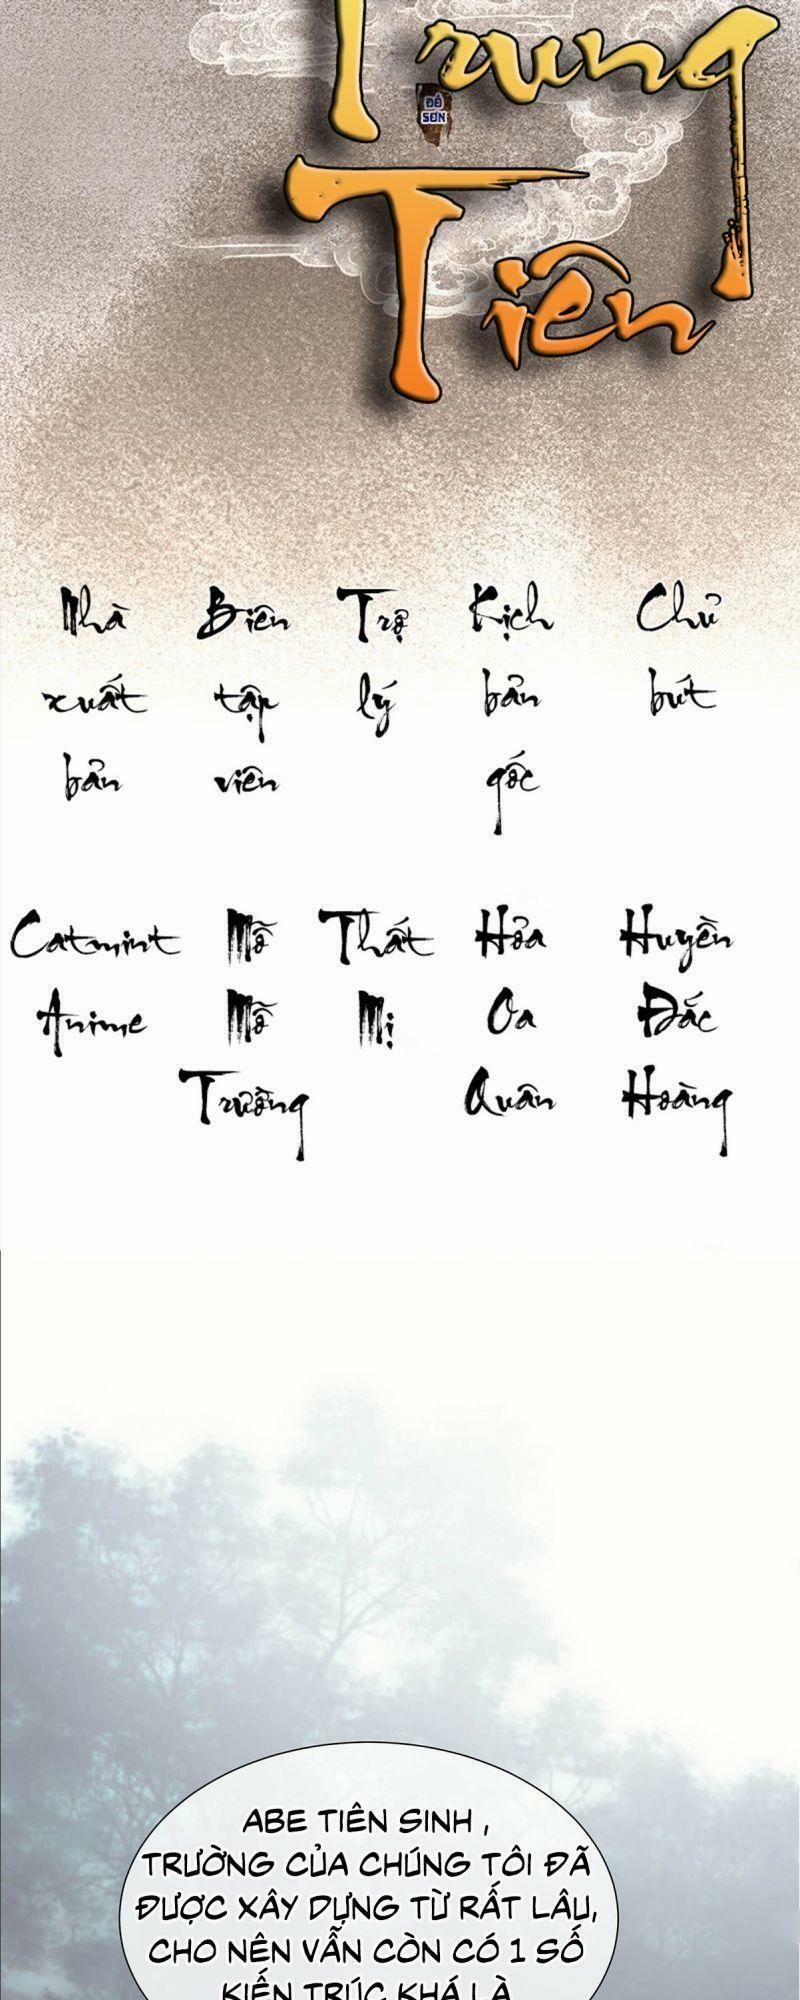 Trung
ĐỀ
SƠN
Tiên
Nhà Biên Trợ Kịch Chủ
xuất tập lý bản bút
bản viên gốc
Catmint Mỗ Thất Hỏa Huyền
Anime Mỗ Mị Oa Đắc
Trường Quân Hoàng
ABE TIÊN SINH ,
TRƯỜNG CỦA CHÚNG TÔI ĐÃ
ĐƯỢC XÂY DỰNG TỪ RẤT LÂU,
CHO NÊN VẪN CÒN CÓ 1 SỐ
KIẾN TRÚC KHÁ LÀ